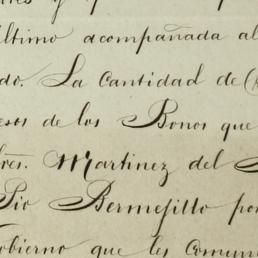 último acompañada al
do. La Cantidad de
esos de los Bonos que
res. Martinez del
Pio Bermejillo por
obierno que les Comuni